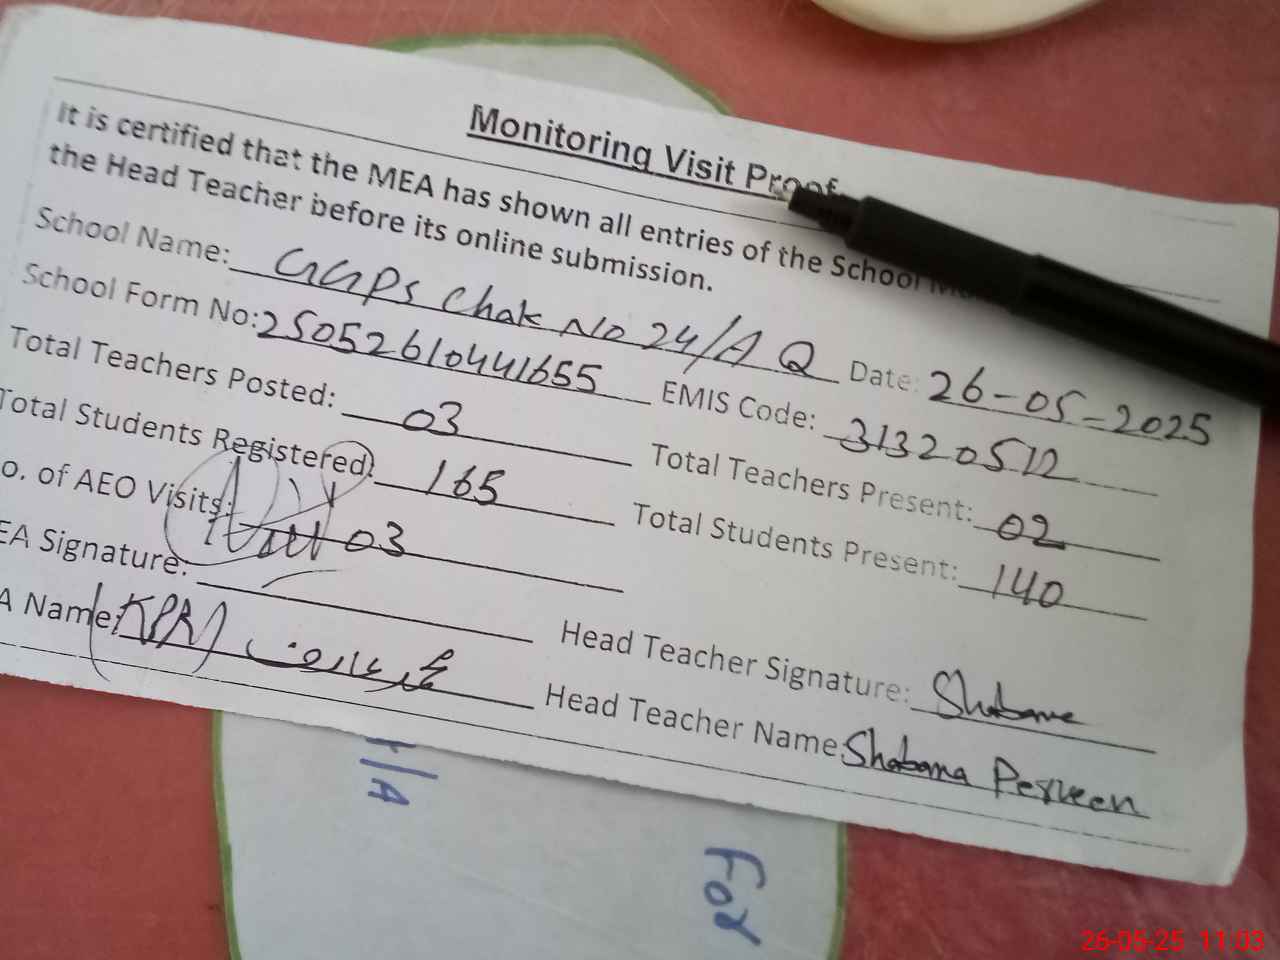 Monitoring Visit Proof
It is certified that the MEA has shown all entries of the School
the Head Teacher before its online submission.
School Name: GGPS Chak No 24/A Q Date: 26-05-2025
School Form No: 25052610441655 EMIS Code: 31320512
Total Teachers Posted: 03 Total Teachers Present: 02
Total Students Registered: 165 Total Students Present: 140
o. of AEO Visits: 03
EA Signature: Head Teacher Signature: Shabana
A Name: Head Teacher Name: Shabana Perveen
/A
For
26-05-25 11:03